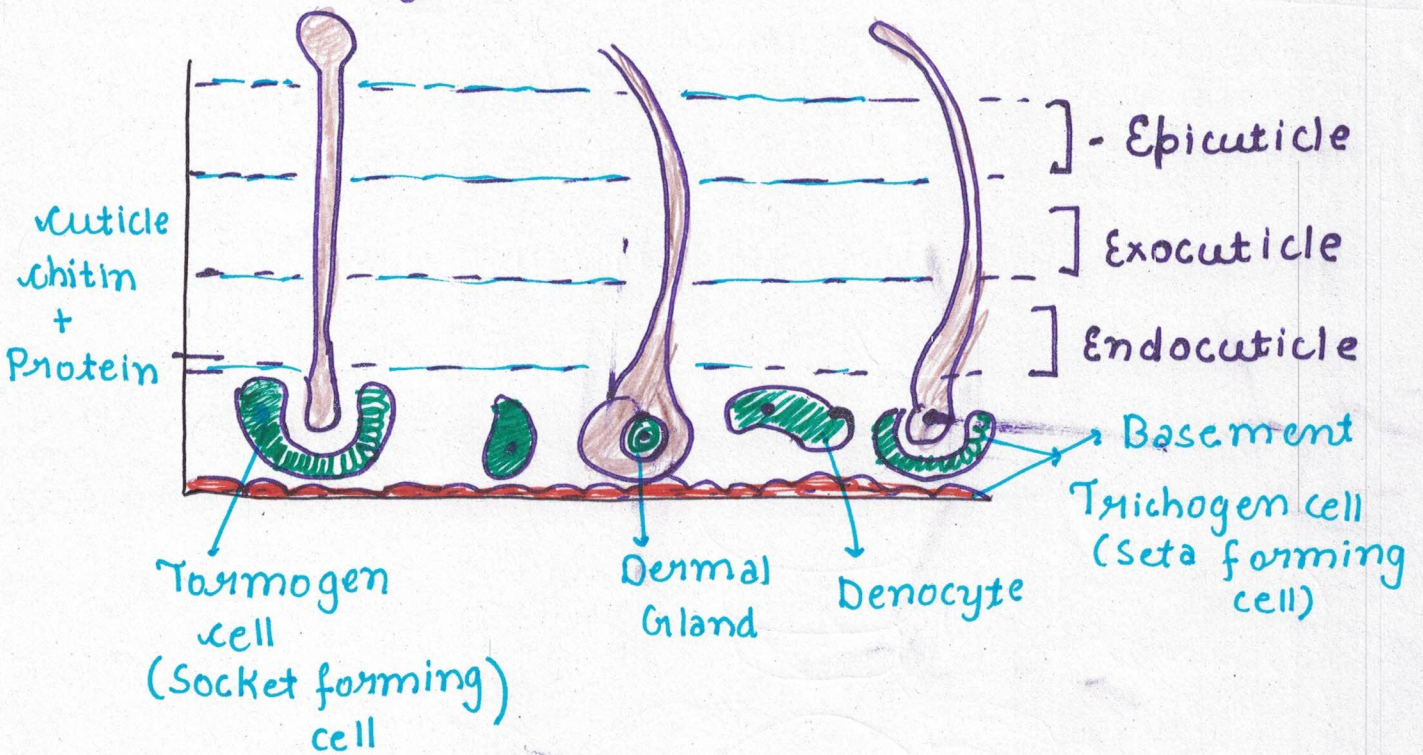 Epicuticle
Cuticle
chitin
+
Protein
Exocuticle
Endocuticle
Basement
Trichogen cell
(Seta forming
cell)
Tormogen
cell
(Socket forming)
cell
Dermal
Gland
Denocyte